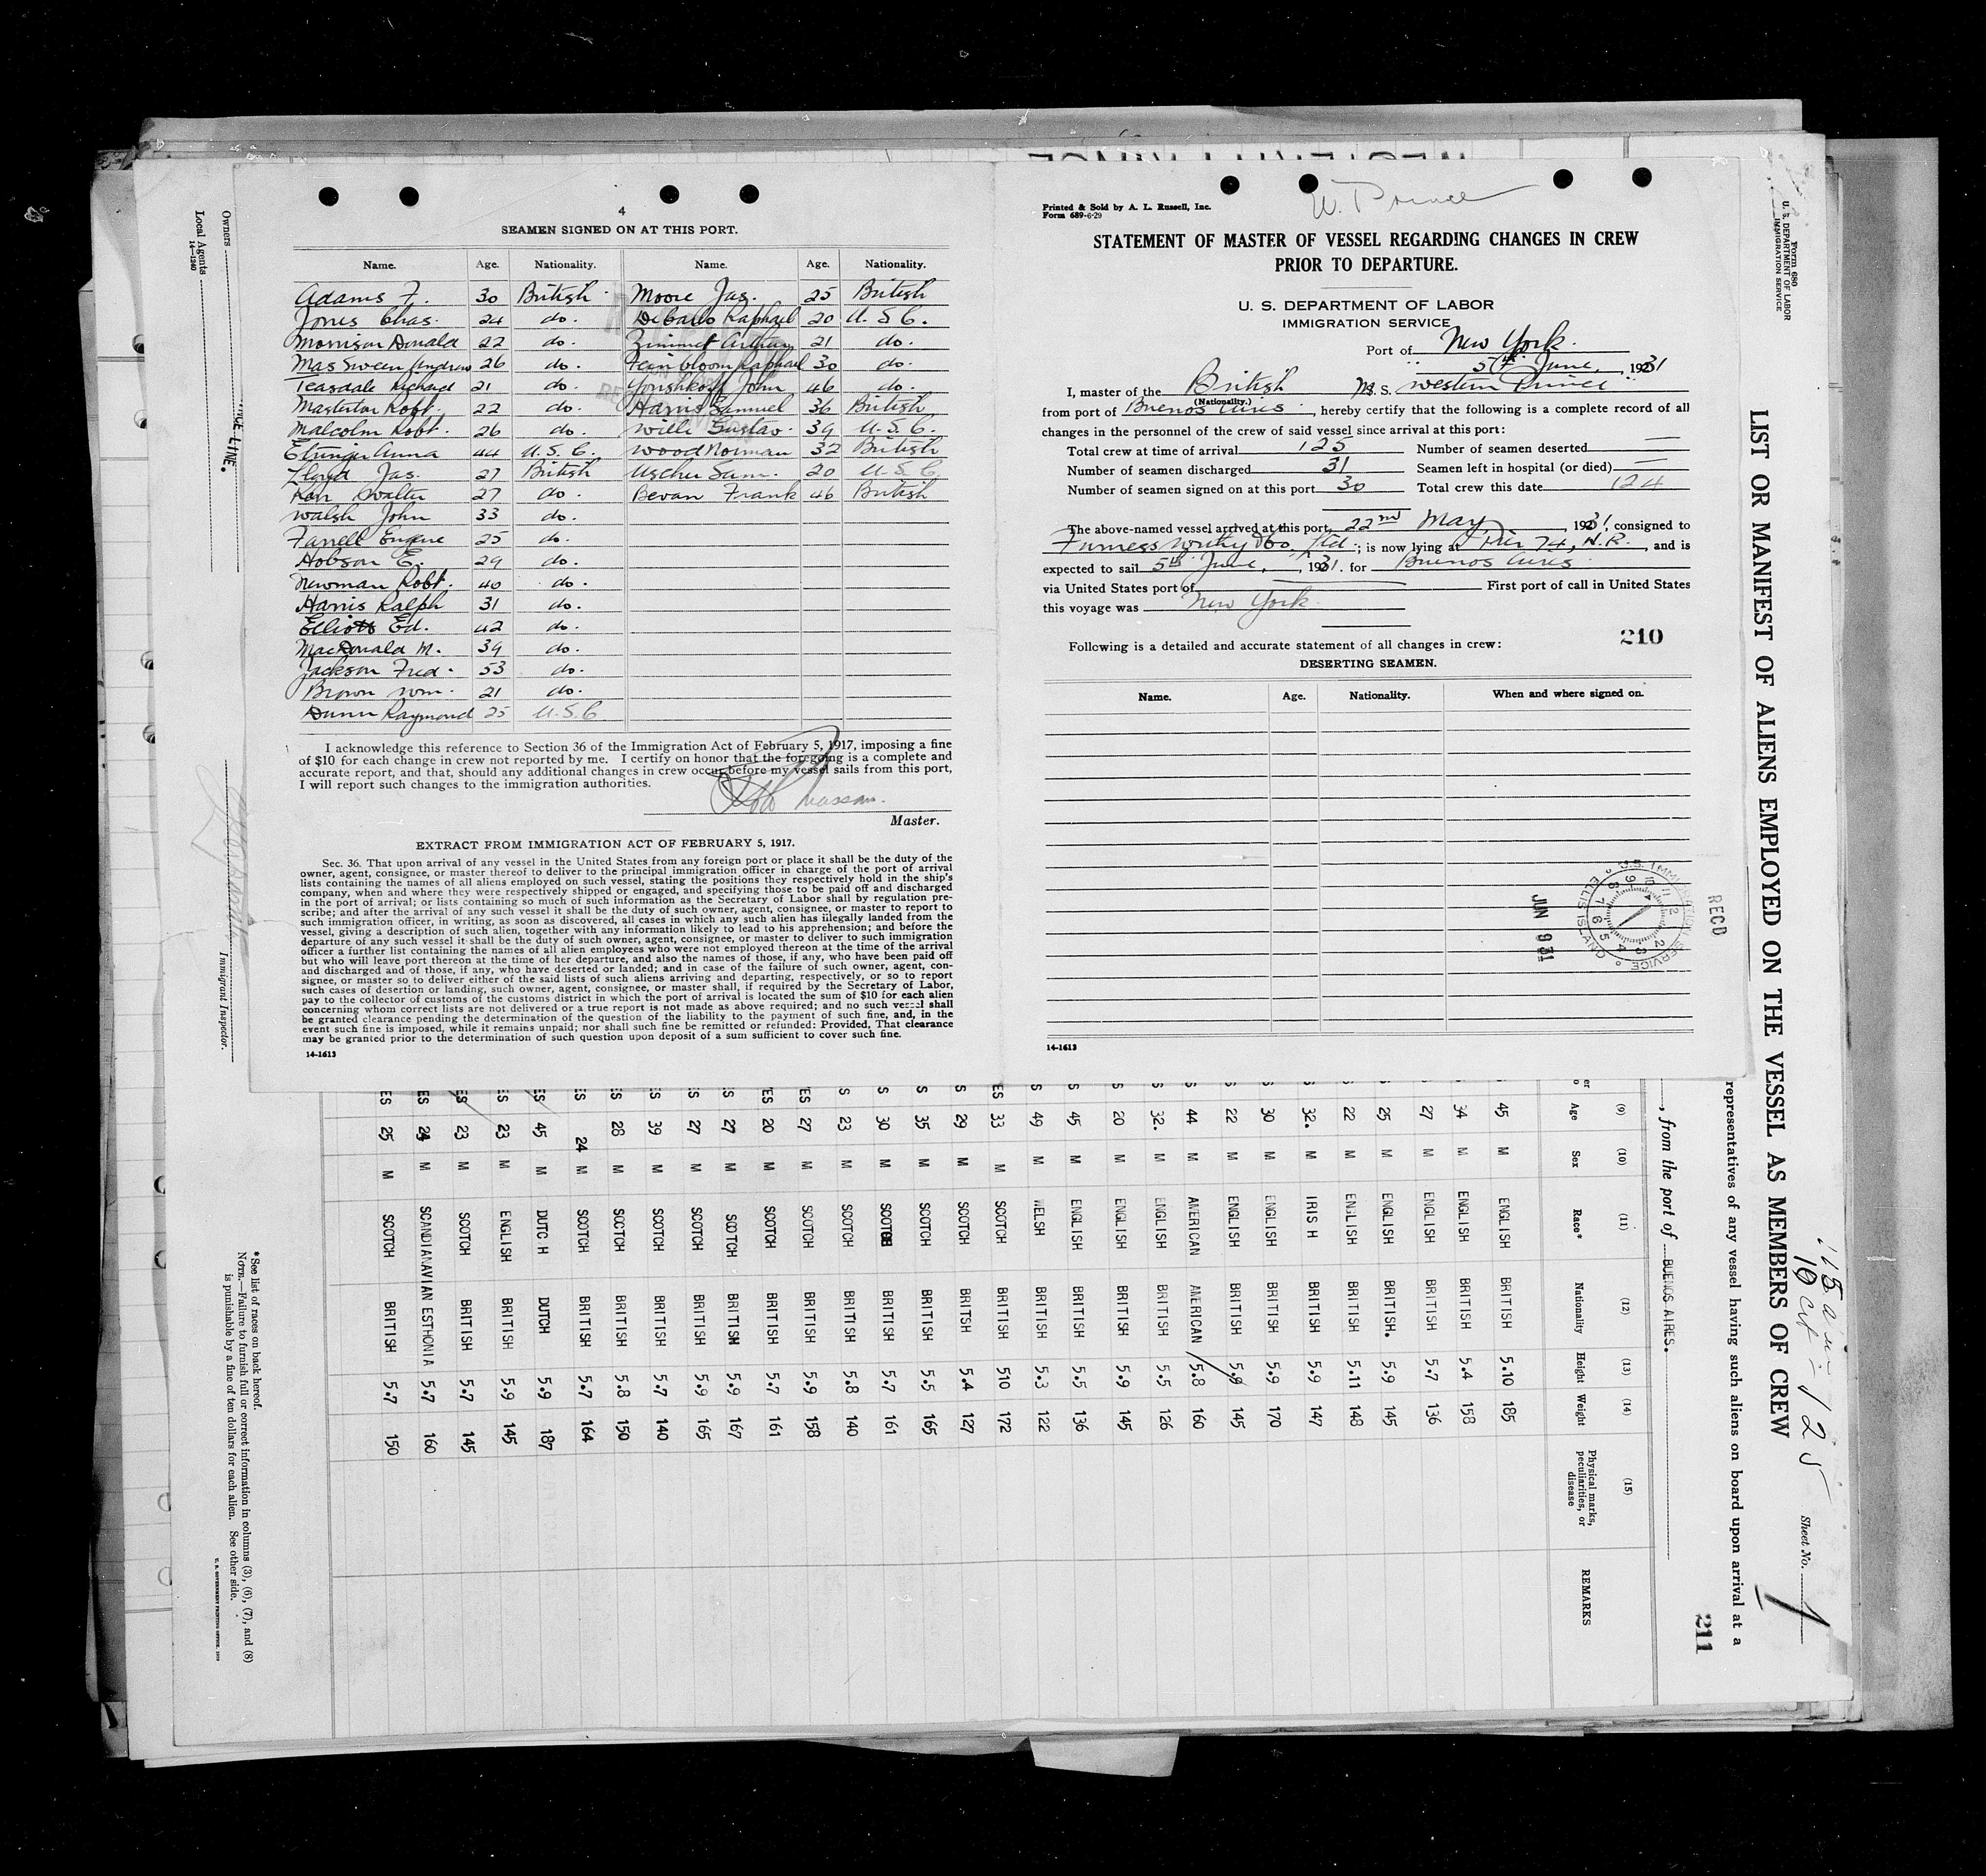 4
SEAMEN SIGNED ON AT THIS PORT.
Name. Age. Nationality. Name. Age. Nationality.
Adams F. 30 British Moore Jas. 25 British
Jones Chas. 24 do. DeCarlo Raphael 20 U.S.C.
Morrison Donald 22 do. Zimmet Arthur 21 do.
MacSween Andrew 26 do. Feinbloom Raphael 30 do.
Teasdale Richard 21 do. Yourshkoff John 46 do.
Masterton Robt. 22 do. Harris Samuel 36 British
Malcolm Robt. 26 do. Wille Gustav. 39 U.S.C.
Etringer Anna 44 U.S.C. Wood Norman 32 British
Lloyd Jas. 27 British Uscher Sam. 20 U.S.C.
Walter 27 do. Bevan Frank 46 British
Walsh John 33 do.
Farrell Eugene 25 do.
Hobson E. 29 do.
Newman Robt. 40 do.
Harris Ralph 31 do.
Elliott Ed. 42 do.
MacDonald M. 39 do.
Jackson Fred. 53 do.
Brown Wm. 21 do.
Dunn Raymond 25 U.S.C
I acknowledge this reference to Section 36 of the Immigration Act of February 5, 1917, imposing a fine
of $10 for each change in crew not reported by me. I certify on honor that the foregoing is a complete and
accurate report, and that, should any additional changes in crew occur before my vessel sails from this port,
I will report such changes to the immigration authorities.
Master.
EXTRACT FROM IMMIGRATION ACT OF FEBRUARY 5, 1917.
Sec. 36. That upon arrival of any vessel in the United States from any foreign port or place it shall be the duty of the
owner, agent, consignee, or master thereof to deliver to the principal immigration officer in charge of the port of arrival
lists containing the names of all aliens employed on such vessel, stating the positions they respectively hold in the ship's
company, when and where they were respectively shipped or engaged, and specifying those to be paid off and discharged
in the port of arrival; or lists containing so much of such information as the Secretary of Labor shall by regulation pre-
scribe; and after the arrival of any such vessel it shall be the duty of such owner, agent, consignee, or master to report to
such immigration officer, in writing, as soon as discovered, all cases in which any such alien has illegally landed from the
vessel, giving a description of such alien, together with any information likely to lead to his apprehension; and before the
departure of any such vessel it shall be the duty of such owner, agent, consignee, or master to deliver to such immigration
officer a further list containing the names of all alien employees who were not employed thereon at the time of the arrival
but who will leave port thereon at the time of her departure, and also the names of those, if any, who have been paid off
and discharged and of those, if any, who have deserted or landed; and in case of the failure of such owner, agent, con-
signee, or master so to deliver either of the said lists of such aliens arriving and departing, respectively, or so to report
such cases of desertion or landing, such owner, agent, consignee, or master shall, if required by the Secretary of Labor,
pay to the collector of customs of the customs district in which the port of arrival is located the sum of $10 for each alien
concerning whom correct lists are not delivered or a true report is not made as above required; and no such vessel shall
be granted clearance pending the determination of the question of the liability to the payment of such fine, and, in the
event such fine is imposed, while it remains unpaid; nor shall such fine be remitted or refunded: Provided, That clearance
may be granted prior to the determination of such question upon deposit of a sum sufficient to cover such fine.
14-1613
W. Prince
Printed & Sold by A. L. Russell, Inc.
Form 689-6-29
STATEMENT OF MASTER OF VESSEL REGARDING CHANGES IN CREW
PRIOR TO DEPARTURE.
U. S. DEPARTMENT OF LABOR
IMMIGRATION SERVICE
Port of New York.
5th June, 1931
I, master of the British M.S. Western Prince
(Nationality.)
from port of Buenos Aires, hereby certify that the following is a complete record of all
changes in the personnel of the crew of said vessel since arrival at this port:
Total crew at time of arrival 125 Number of seamen deserted
Number of seamen discharged 31 Seamen left in hospital (or died)
Number of seamen signed on at this port 30 Total crew this date 124
The above-named vessel arrived at this port, 22nd May, 1931, consigned to
Furness Withy & Co. Ltd.; is now lying at Pier 74, N.R., and is
expected to sail 5th June, 1931. for Buenos Aires
via United States port of First port of call in United States
this voyage was New York
210
Following is a detailed and accurate statement of all changes in crew:
DESERTING SEAMEN.
Name. Age. Nationality. When and where signed on.
14-1613
RECD
U.S. IMMIGRATION SERVICE ELLIS ISLAND
JUN 9 31
Form 680
U. S. DEPARTMENT OF LABOR
IMMIGRATION SERVICE
LIST OR MANIFEST OF ALIENS EMPLOYED ON THE VESSEL AS MEMBERS OF CREW
125
Sheet No. 1
representatives of any vessel having such aliens on board upon arrival at a
211
, from the port of BUENOS AIRES.
(9) (10) (11) (12) (13) (14) (15)
Age Sex Race* Nationality Height Weight Physical marks, peculiarities, or disease REMARKS
45 M ENGLISH BRITISH 5.10 185
34 M ENGLISH BRITISH 5.4 158
27 M ENGLISH BRITISH 5.7 136
25 M ENGLISH. BRITISH. 5.9 145
22 M ENGLISH BRITISH 5.11 148
32. M IRIS H BRITISH 5.9 147
30 M ENGLISH BRITISH 5.9 170
22 M ENGLISH BRITISH 5.9 145
44 M AMERICAN AMERICAN 5.8 160
32. M ENGLISH BRITISH 5.5 126
20 M ENGLISH BRITISH 5.9 145
45 M ENGLISH BRITISH 5.5 136
49 M WELSH BRITISH 5.3 122
33 M SCOTCH BRITISH 510 172
29 M SCOTCH BRITSH 5.4 127
35 M SCOTCH BRITISH 5.5 165
30 M SCOTCH BRITISH 5.7 161
23 M SCOTCH BRITISH 5.8 140
27 M SCOTCH BRITISH 5.9 158
20 M SCOTCH BRITISH 5.7 161
27 M SCOTCH BRITISH 5.9 167
27 M SCOTCH BRITISH 5.9 165
39 M SCOTCH BRITISH 5.7 140
28 M SCOTCH BRITISH 5.8 150
24 M SCOTCH BRITISH 5.7 164
45 M DUTC H DUTCH 5.9 187
23 M ENGLISH BRITISH 5.9 145
23 M SCOTCH BRITISH 5.7 145
24 M SCANDIANAVIAN ESTHONIA 5.7 160
25 M SCOTCH BRITISH 5.7 150
Owners
LINE.
Local Agents
14-1240
Immigrant Inspector.
*See list of races on back hereof.
NOTE.—Failure to furnish full or correct information in columns (3), (6), (7), and (8)
is punishable by a fine of ten dollars for each alien. See other side.
U. S. GOVERNMENT PRINTING OFFICE